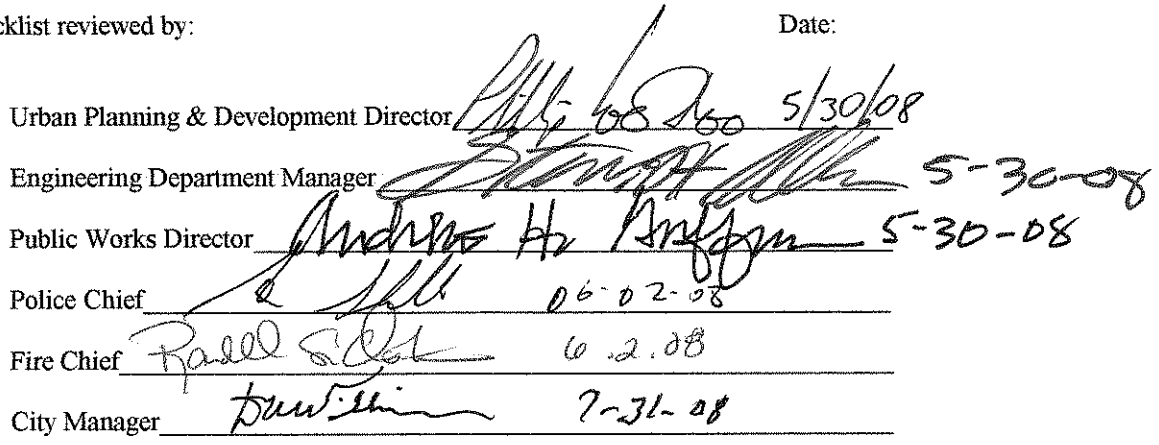 cklist reviewed by: Date:
Urban Planning & Development Director 5/30/08
Engineering Department Manager 5-30-08
Public Works Director 5-30-08
Police Chief 06-02-08
Fire Chief 6.2.08
City Manager 7-31-08